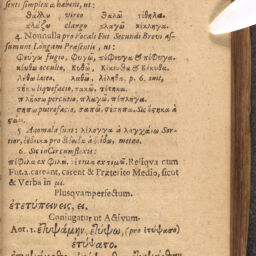 senti simplex a habent, ut:
θάλλω vireo θαλῶ τέθηλα.
κλάζω clango κλαγῶ κέκληγα.
4. Nonnulla pro Vocali Fut. Secundi Brevi as-
sumunt Longam Præsentis, ut:
Φεύγω fugio, Φυγῶ, πέφευγα & πέφυγα.
κεύθω occulto, Κυθῶ, Κέκευθα & Κέκυθα.
λήθω lateo, λαθῶ, λέληθα. p. 6.
τήκω liquefacio, τακῶ, τέτηκα.
πλήσσω percutio, πλαγῶ, πέπληγα.
σήπω putrefacio, σαπῶ, σέσηπα.
5. Anomala sunt: λέλογχα à λαγχάνω Sor-
tior,
6. Sic in Circumflexis:
πέφιλα ex φιλῶ. Reliqva cum
Fut. 2. careant, carent & Præterito Medio, sicut
& Verba in μι.
Plusqvamperfectum.
ἐτετύπειν, εις, ει.
Conjugatur ut Activum.
Aor. 1. ἐτυψάμην, ἐτύψω, (pro ἐτύψασο)
ἐτύψατο.